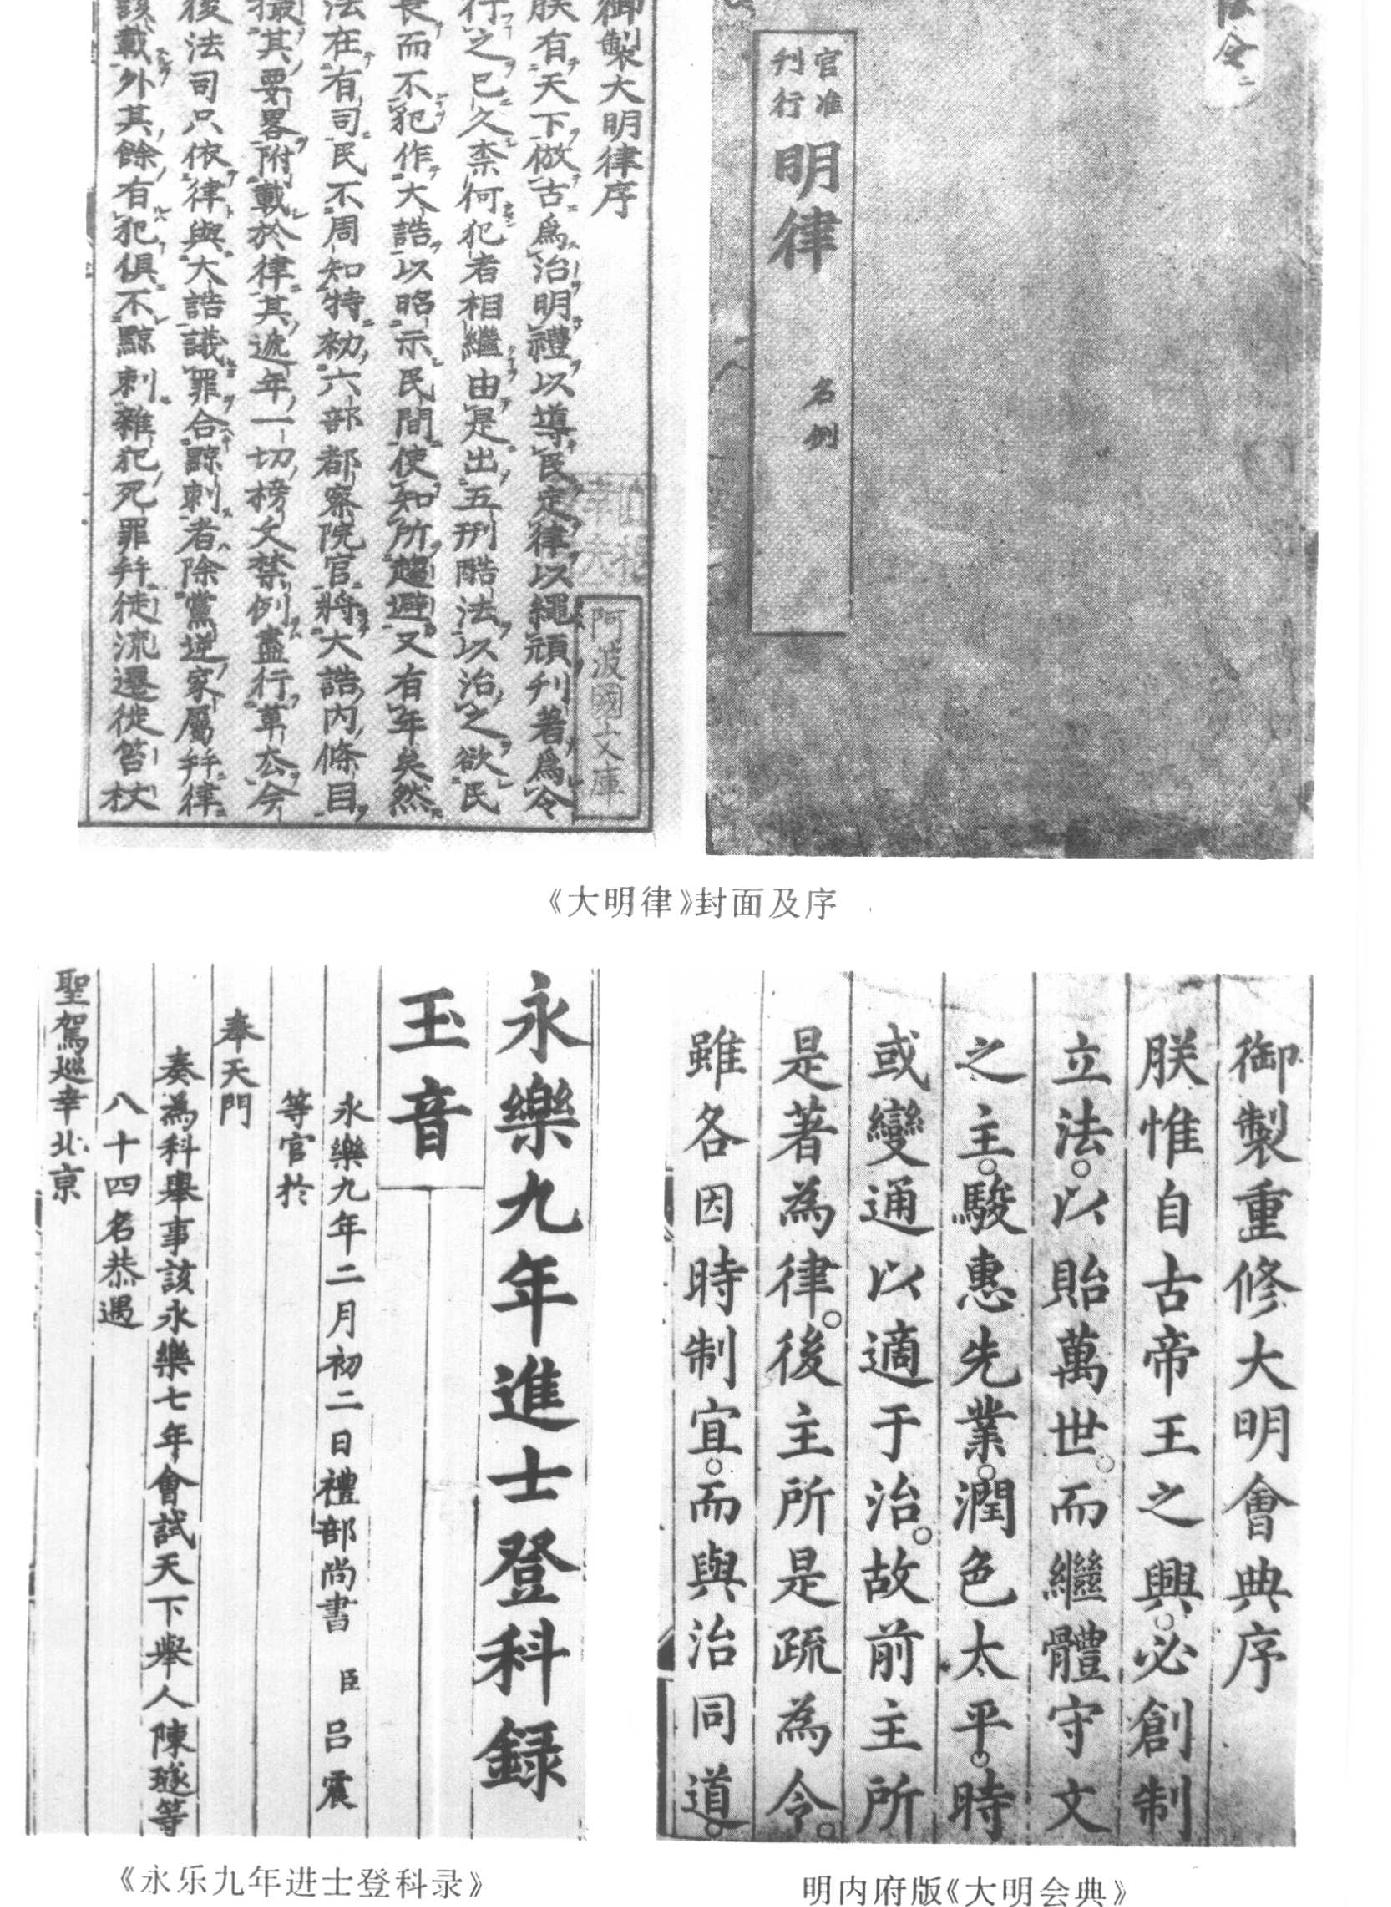 官准
刊行
明律
名例
御製大明律序
朕有天下倣古爲治明禮以導民定律以繩頑刋著爲令
行之已久柰何犯者相繼由是出五刑酷法以治之欲民
畏而不犯作大誥以昭示民間使知所趨避又有年矣然
法在有司民不周知特勑六部都察院官將大誥内條目
撮其要畧附載於律其遞年一切榜文禁例盡行革去今
後法司只依律與大誥議罪合黥刺者除黨逆家屬幷律
該載外其餘有犯俱不黥刺雜犯死罪幷徒流遷徙笞杖
阿波國文庫
《大明律》封面及序
永樂九年進士登科録
玉音
永樂九年二月初二日禮部尚書臣吕震
等官於
奉天門
奏為科舉事該永樂七年會試天下舉人陳璲等
八十四名恭遇
聖駕巡幸北京
《永乐九年进士登科录》
御製重修大明會典序
朕惟自古帝王之興。必創制
立法。以貽萬世。而繼體守文
之主。駿惠先業。潤色太平。時
或變通以適于治。故前主所
是著為律。後主所是疏為令。
雖各因時制宜。而與治同道。
明内府版《大明会典》